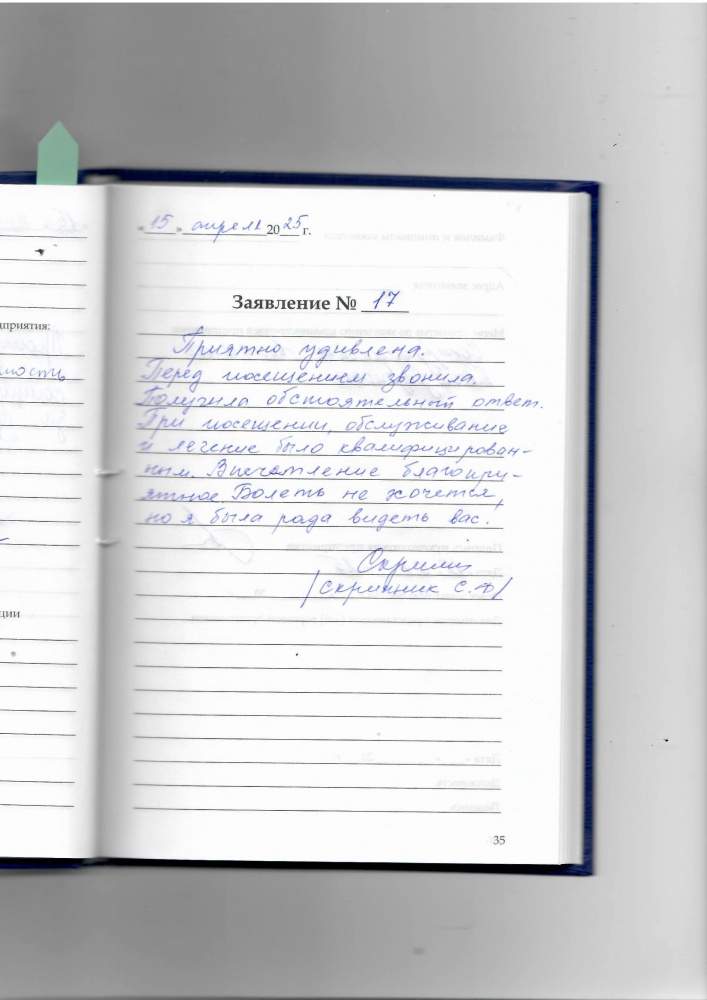 «15» апреля 2025 г.
Заявление № 17
Приятно удивлена.
Перед посещением звонила.
Получила обстоятельный ответ.
При посещении, обслуживание
и лечение было квалифицирован-
ным. Впечатление благопри-
ятное. Болеть не хочется,
но я была рада видеть вас.
/Скрипник С.Ф/
35
дприятия:
ции